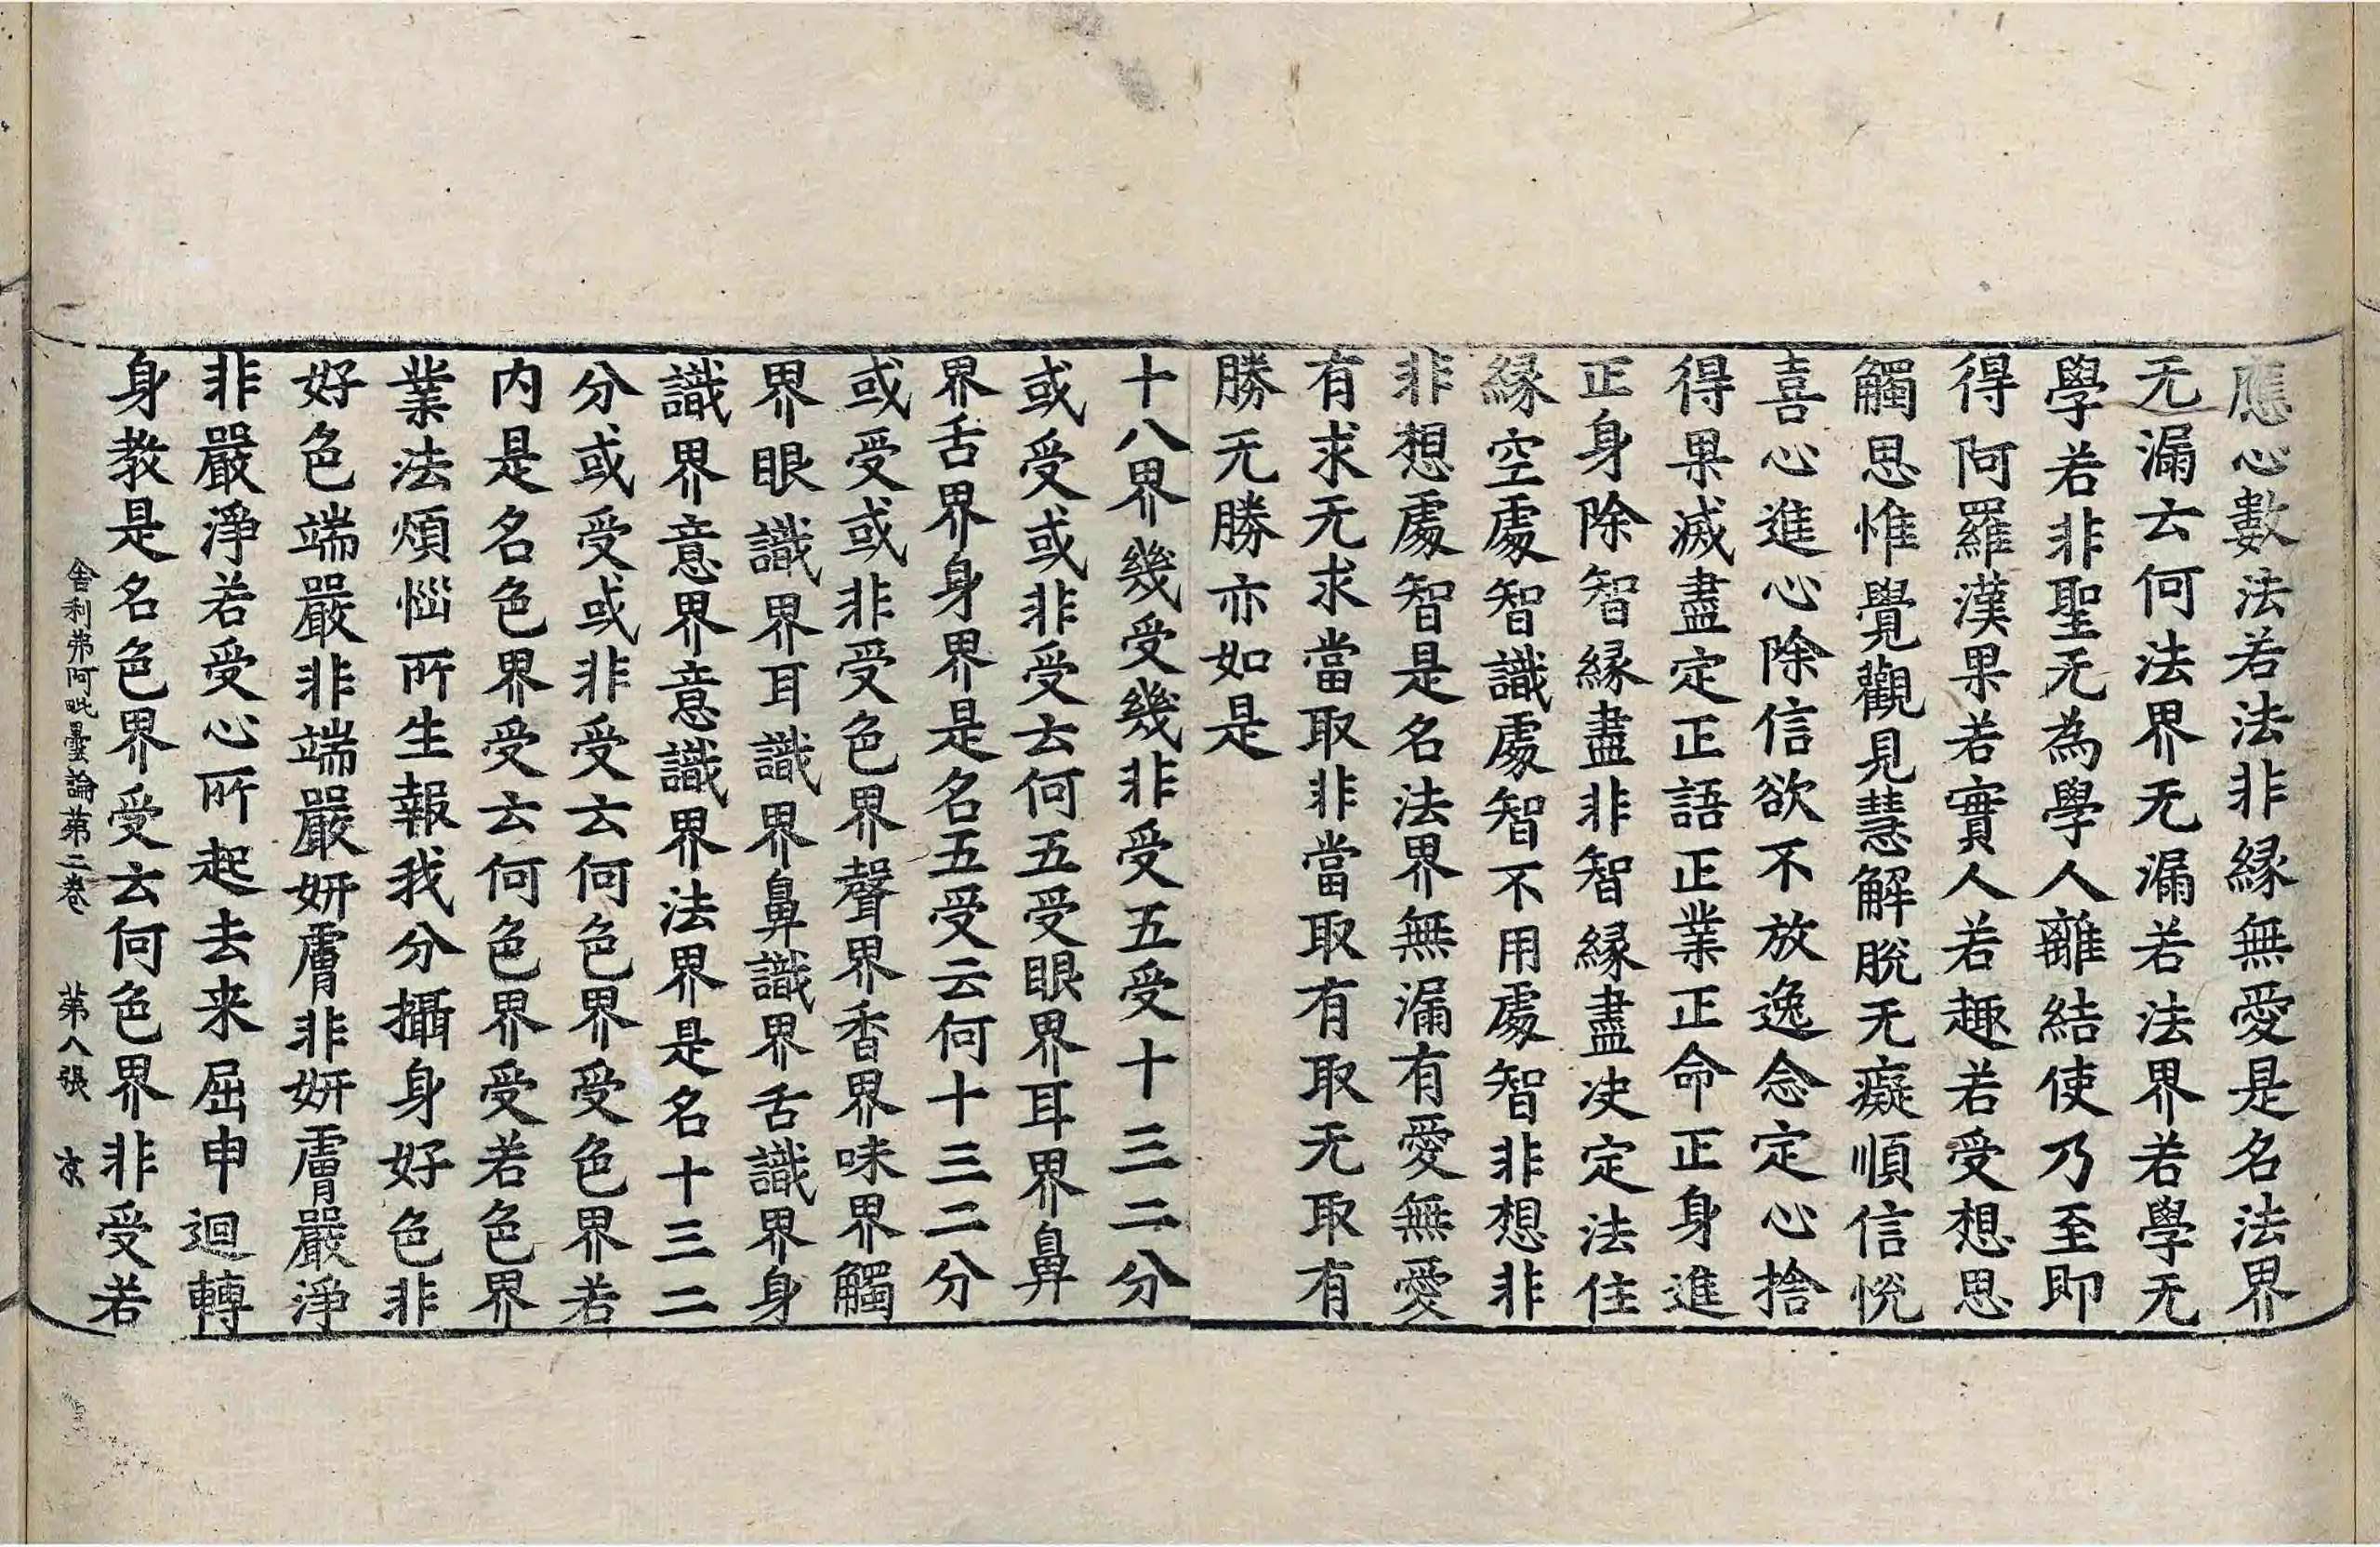 應心數法若法非緣無愛是名法界
无漏云何法界无漏若法界若學无
學若非聖无為學人離結使乃至即
得阿羅漢果若實人若趣若受想思
觸思惟覺觀見慧解脫无癡順信悅
喜心進心除信欲不放逸念定心捨
得果滅盡定正語正業正命正身進
正身除智緣盡非智緣盡决定法住
緣空處智識處智不用處智非想非
非想處智是名法界無漏有愛無愛
有求无求當取非當取有取无取有
勝无勝亦如是
十八界幾受幾非受五受十三二分
或受或非受云何五受眼界耳界鼻
界舌界身界是名五受云何十三二分
或受或非受色界聲界香界味界觸
界眼識界耳識界鼻識界舌識界身
識界意界意識界法界是名十三二
分或受或非受云何色界受色界若
内是名色界受云何色界受若色界
業法煩惱所生報我分攝身好色非
好色端嚴非端嚴妍膚非妍膚嚴淨
非嚴淨若受心所起去来屈申迴轉
身教是名色界受云何色界非受若
舍利弗阿毗曇論第二卷 第八張 京